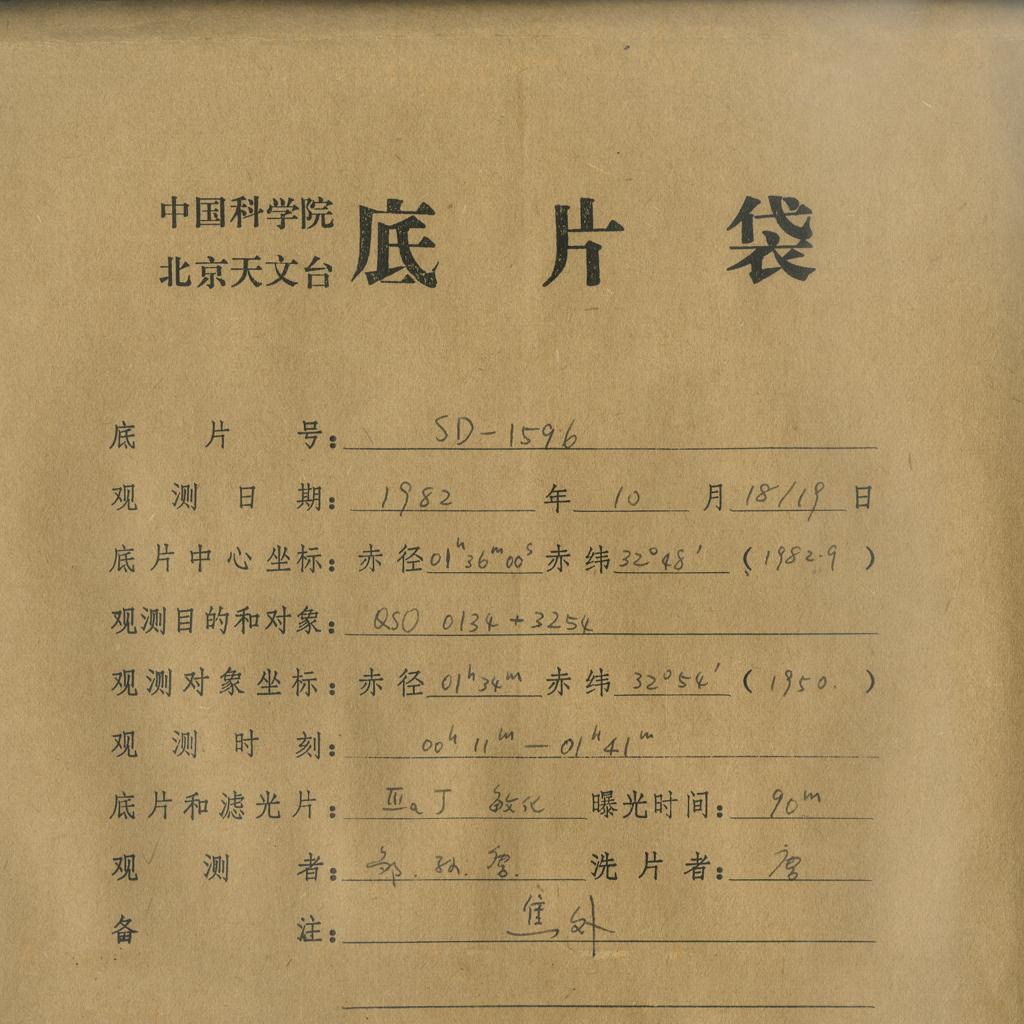 中国科学院
北京天文台
底片袋
底片号: SD-1596
观测日期: 1982 年 10 月 18/19 日
底片中心坐标: 赤径 01ʰ36ᵐ00ˢ 赤纬 32°48′ (1982.9)
观测目的和对象: QSO 0134+3254
观测对象坐标: 赤径 01ʰ34ᵐ 赤纬 32°54′ (1950.)
观测时刻: 00ʰ11ᵐ—01ʰ41ᵐ
底片和滤光片: ⅢaJ 敏化 曝光时间: 90ᵐ
观测者: 邹. 孙. 洗片者:
备注: 焦外